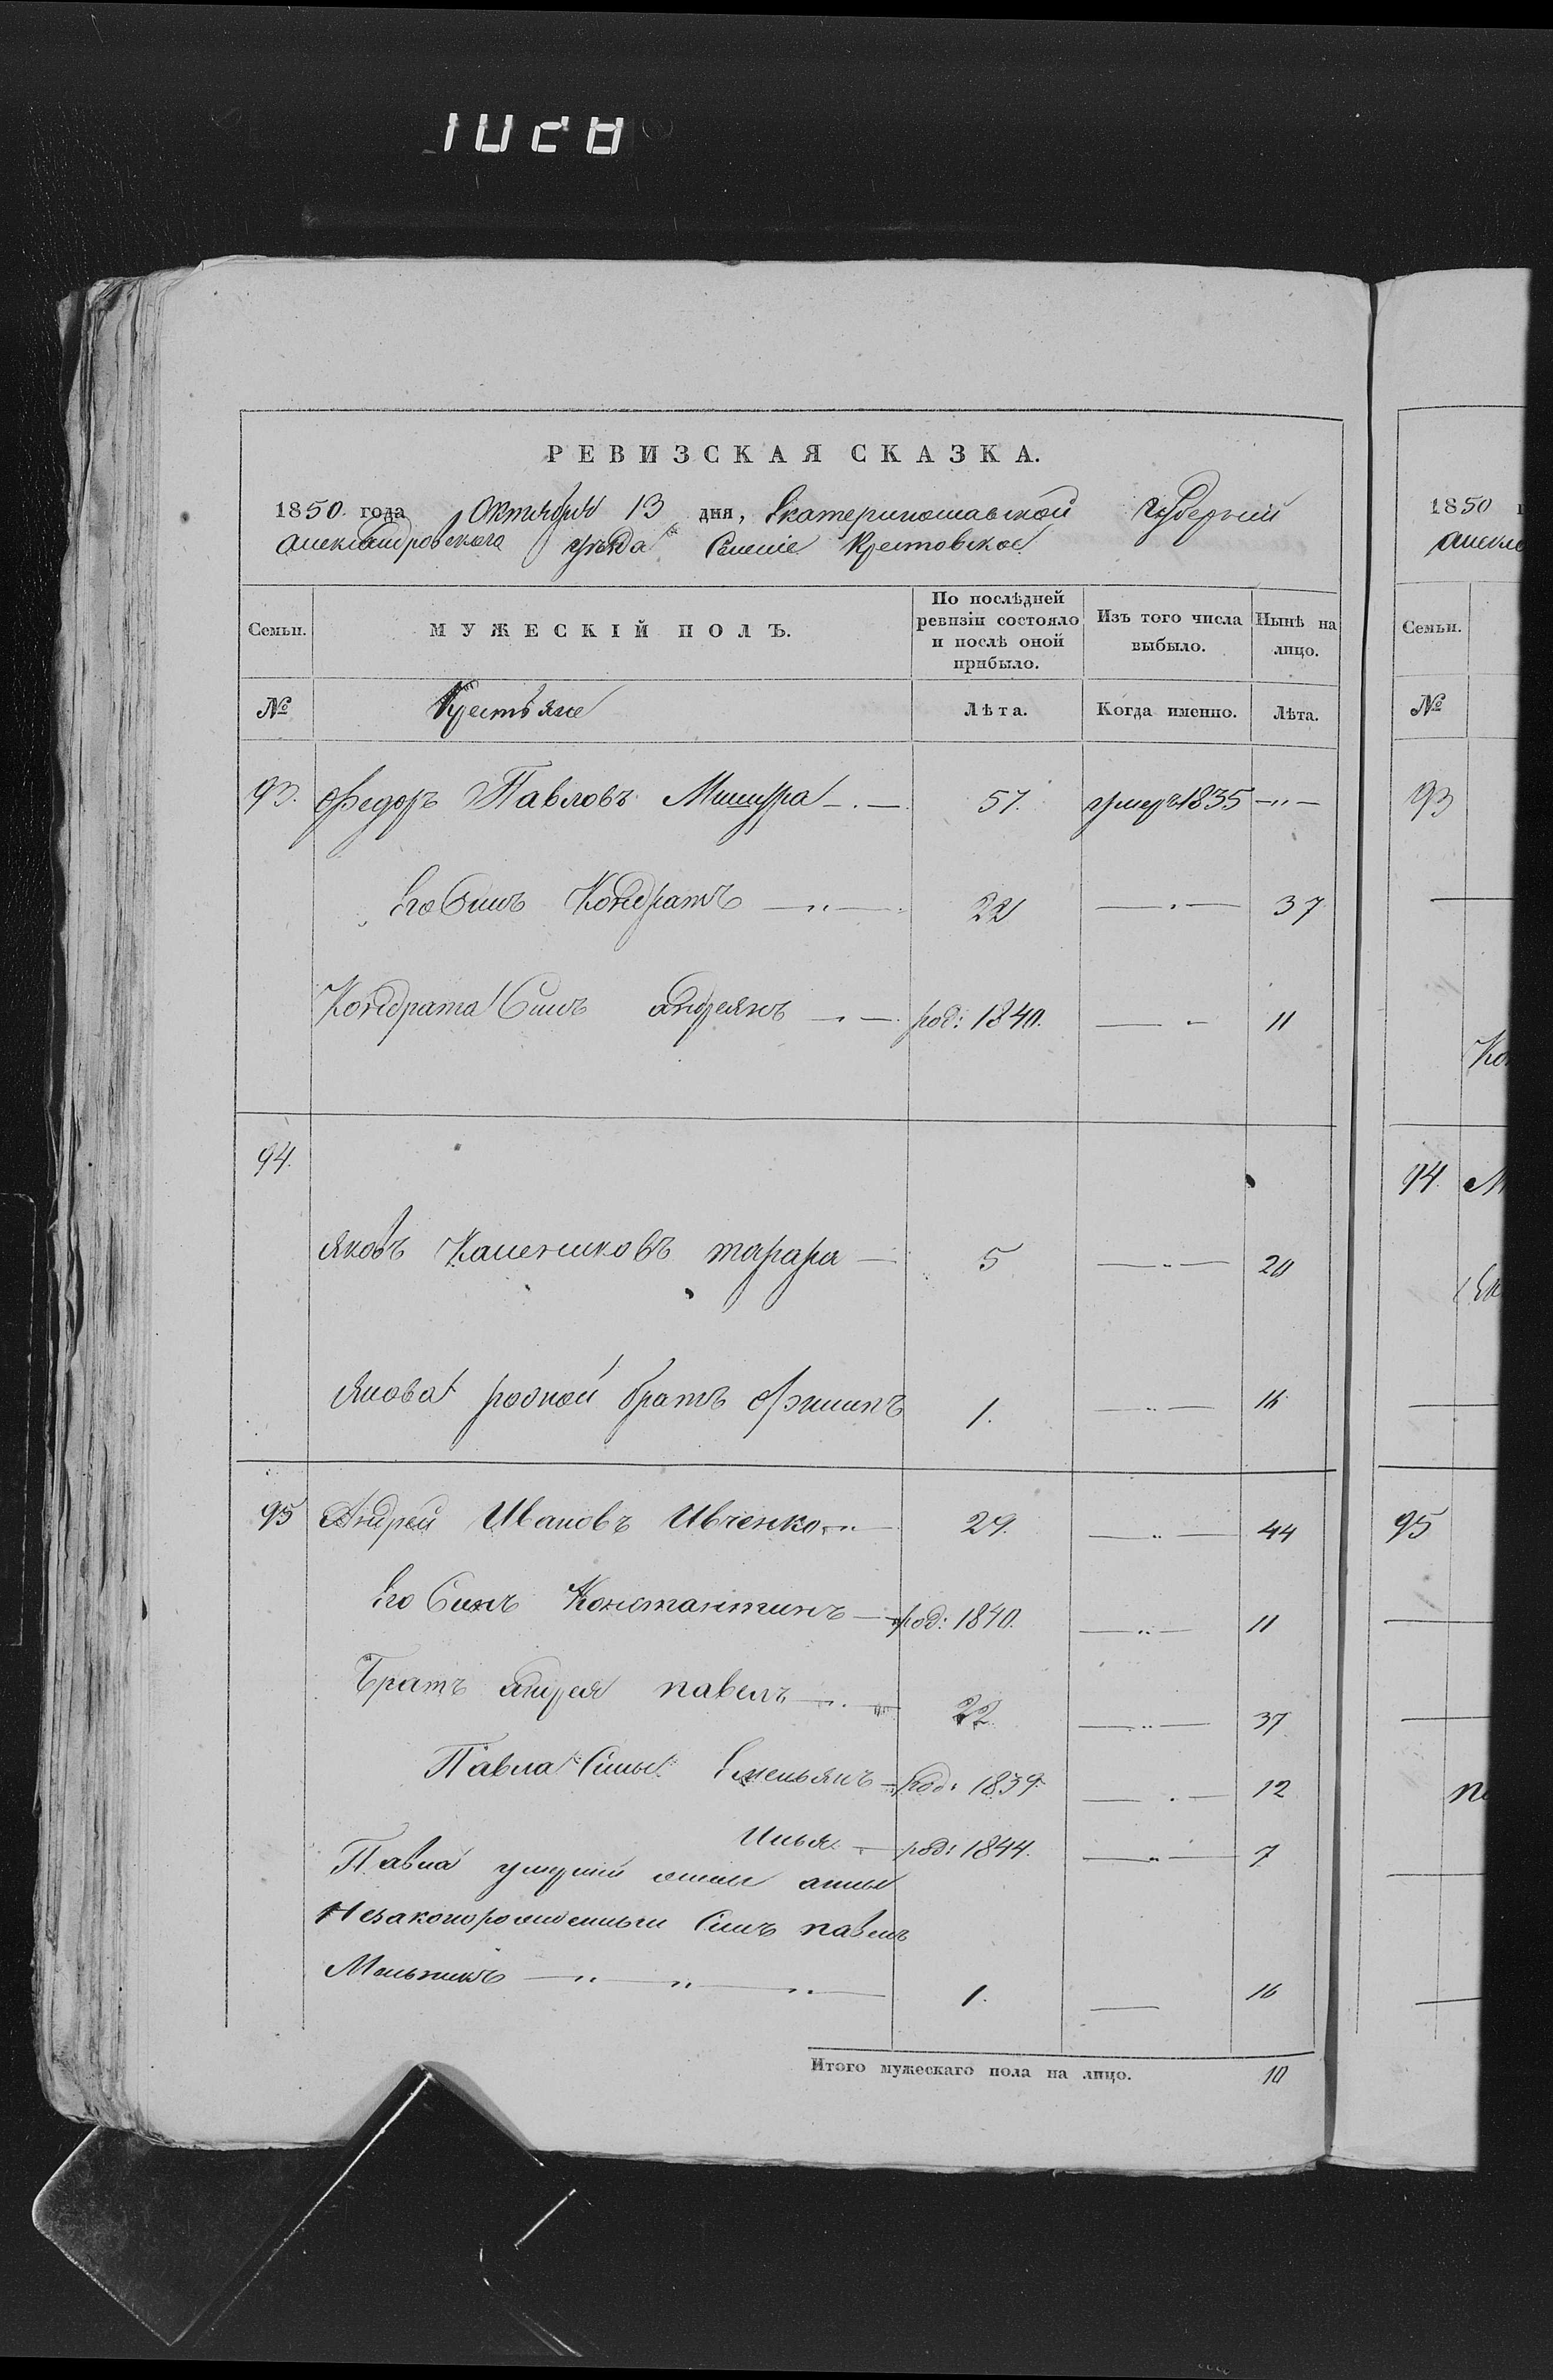 РЕВИЗСКАЯ СКАЗКА.
1850 года Октября 13 дня, Екатеринославской Губернии
Александровского уезда Селение Крестовское
Семьи. МУЖЕСКІЙ ПОЛЪ. По послѣдней ревизіи состояло и послѣ оной прибыло. Изъ того числа выбыло. Нынѣ на лицо.
№ Крестьяне Лѣта. Когда именно. Лѣта.
93. Федоръ Павловъ Мишура 57. умеръ 1835
Его Сынъ Кондратъ 22 37
Кондрата Сынъ Андреянъ род: 1840. 11
94.
Яковъ тарара 5 20
Якова родной братъ 1. 16
95 Андрей Ивановъ Ивченко 29. 44
Его Сынъ Константинъ род: 1840. 11
Братъ андрея павелъ 22. 37
Павла Сыны Емельянъ род: 1839. 12
Илья род: 1844. 7
Павла жены анны
Незаконорожденный Сынъ павелъ
Мельникъ 1. 16
Итого мужескаго пола на лицо. 10
1850
93
94
95